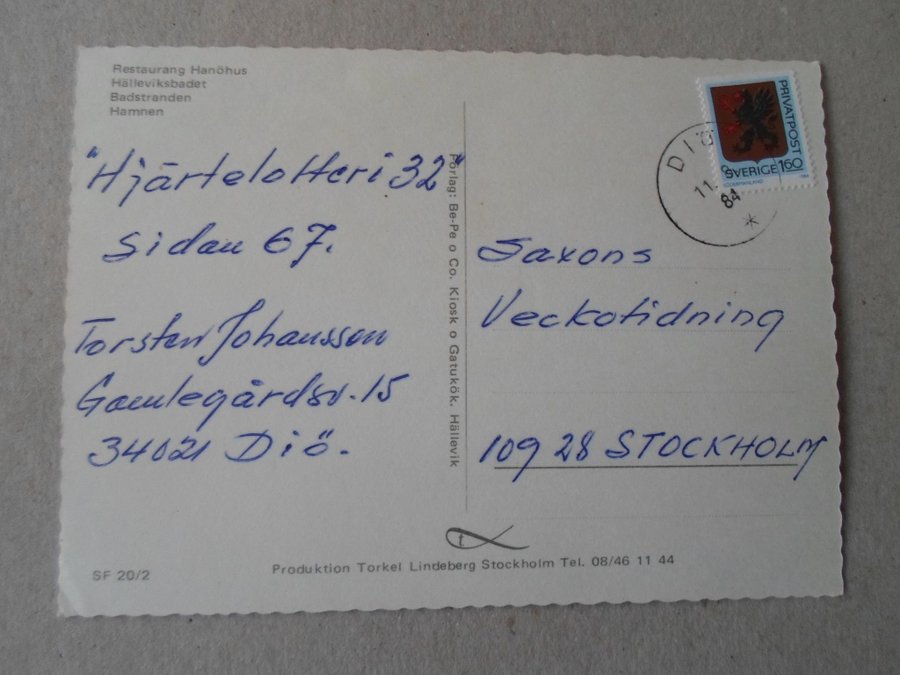 Restaurang Hanöhus
Hälleviksbadet
Badstranden
Hamnen
"Hjärtelotteri 32"
Sidan 67.
Torsten Johansson
Gamlegårdsv. 15
34021 Diö.
Förlag: Be-Pe o Co. Kiosk o Gatukök. Hällevik
PRIVATPOST
SVERIGE 160
DIÖ
11.
84
Saxons
Veckotidning
109 28 STOCKHOLM
t
SF 20/2
Produktion Torkel Lindeberg Stockholm Tel. 08/46 11 44